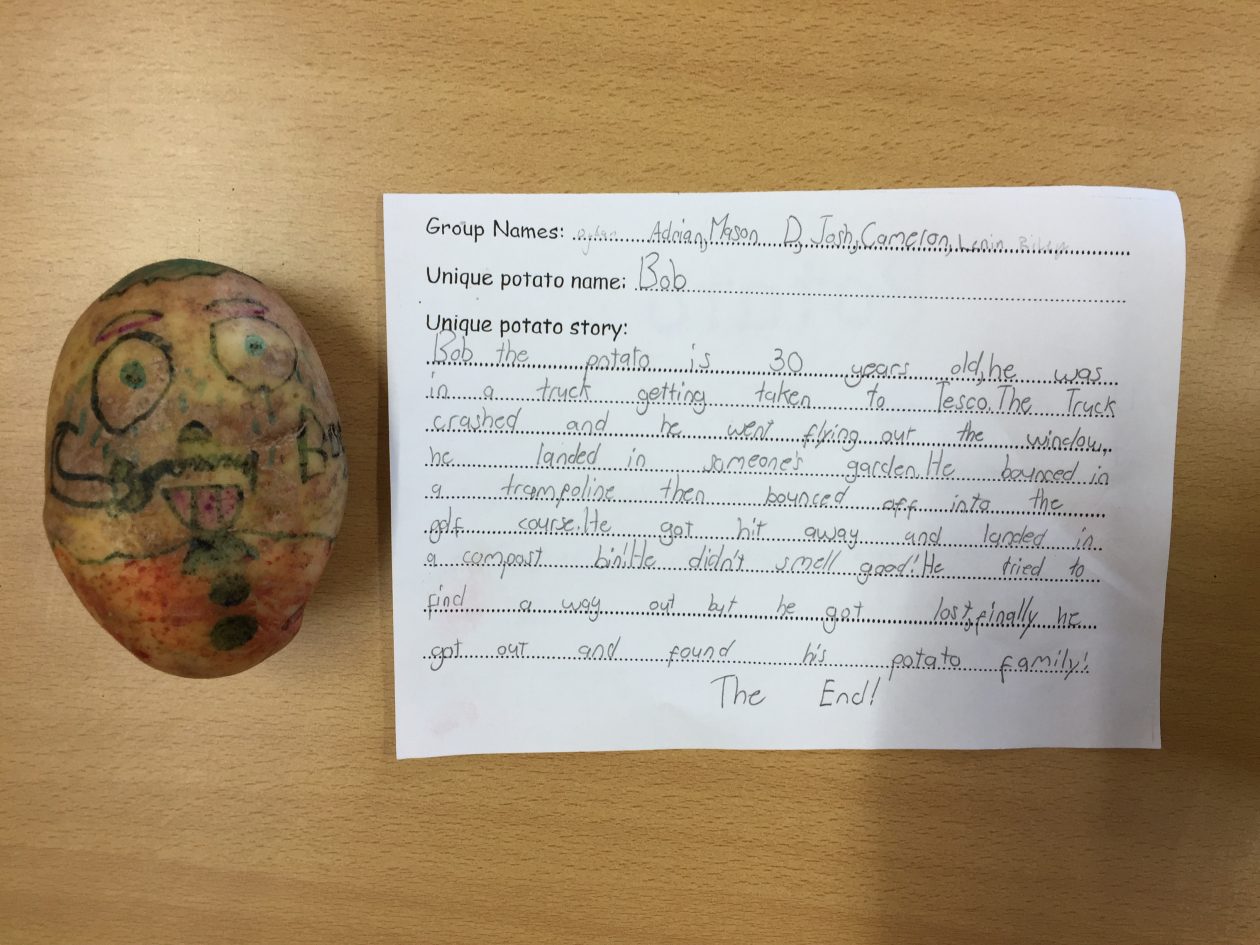 Group Names: Dylan Adrian, Mason D, Josh, Cameron, Lenin
Unique potato name: Bob
Unique potato story:
Bob the potato is 30 years old, he was
in a truck getting taken to Tesco. The Truck
crashed and he went flying out the window,
he landed in someone's garden. He bounced in
a trampoline then bounced off into the
golf course. He got hit away and landed in
a compost bin! He didn't smell good! He tried to
find a way out but he got lost, finally he
got out and found his potato family!
The End!